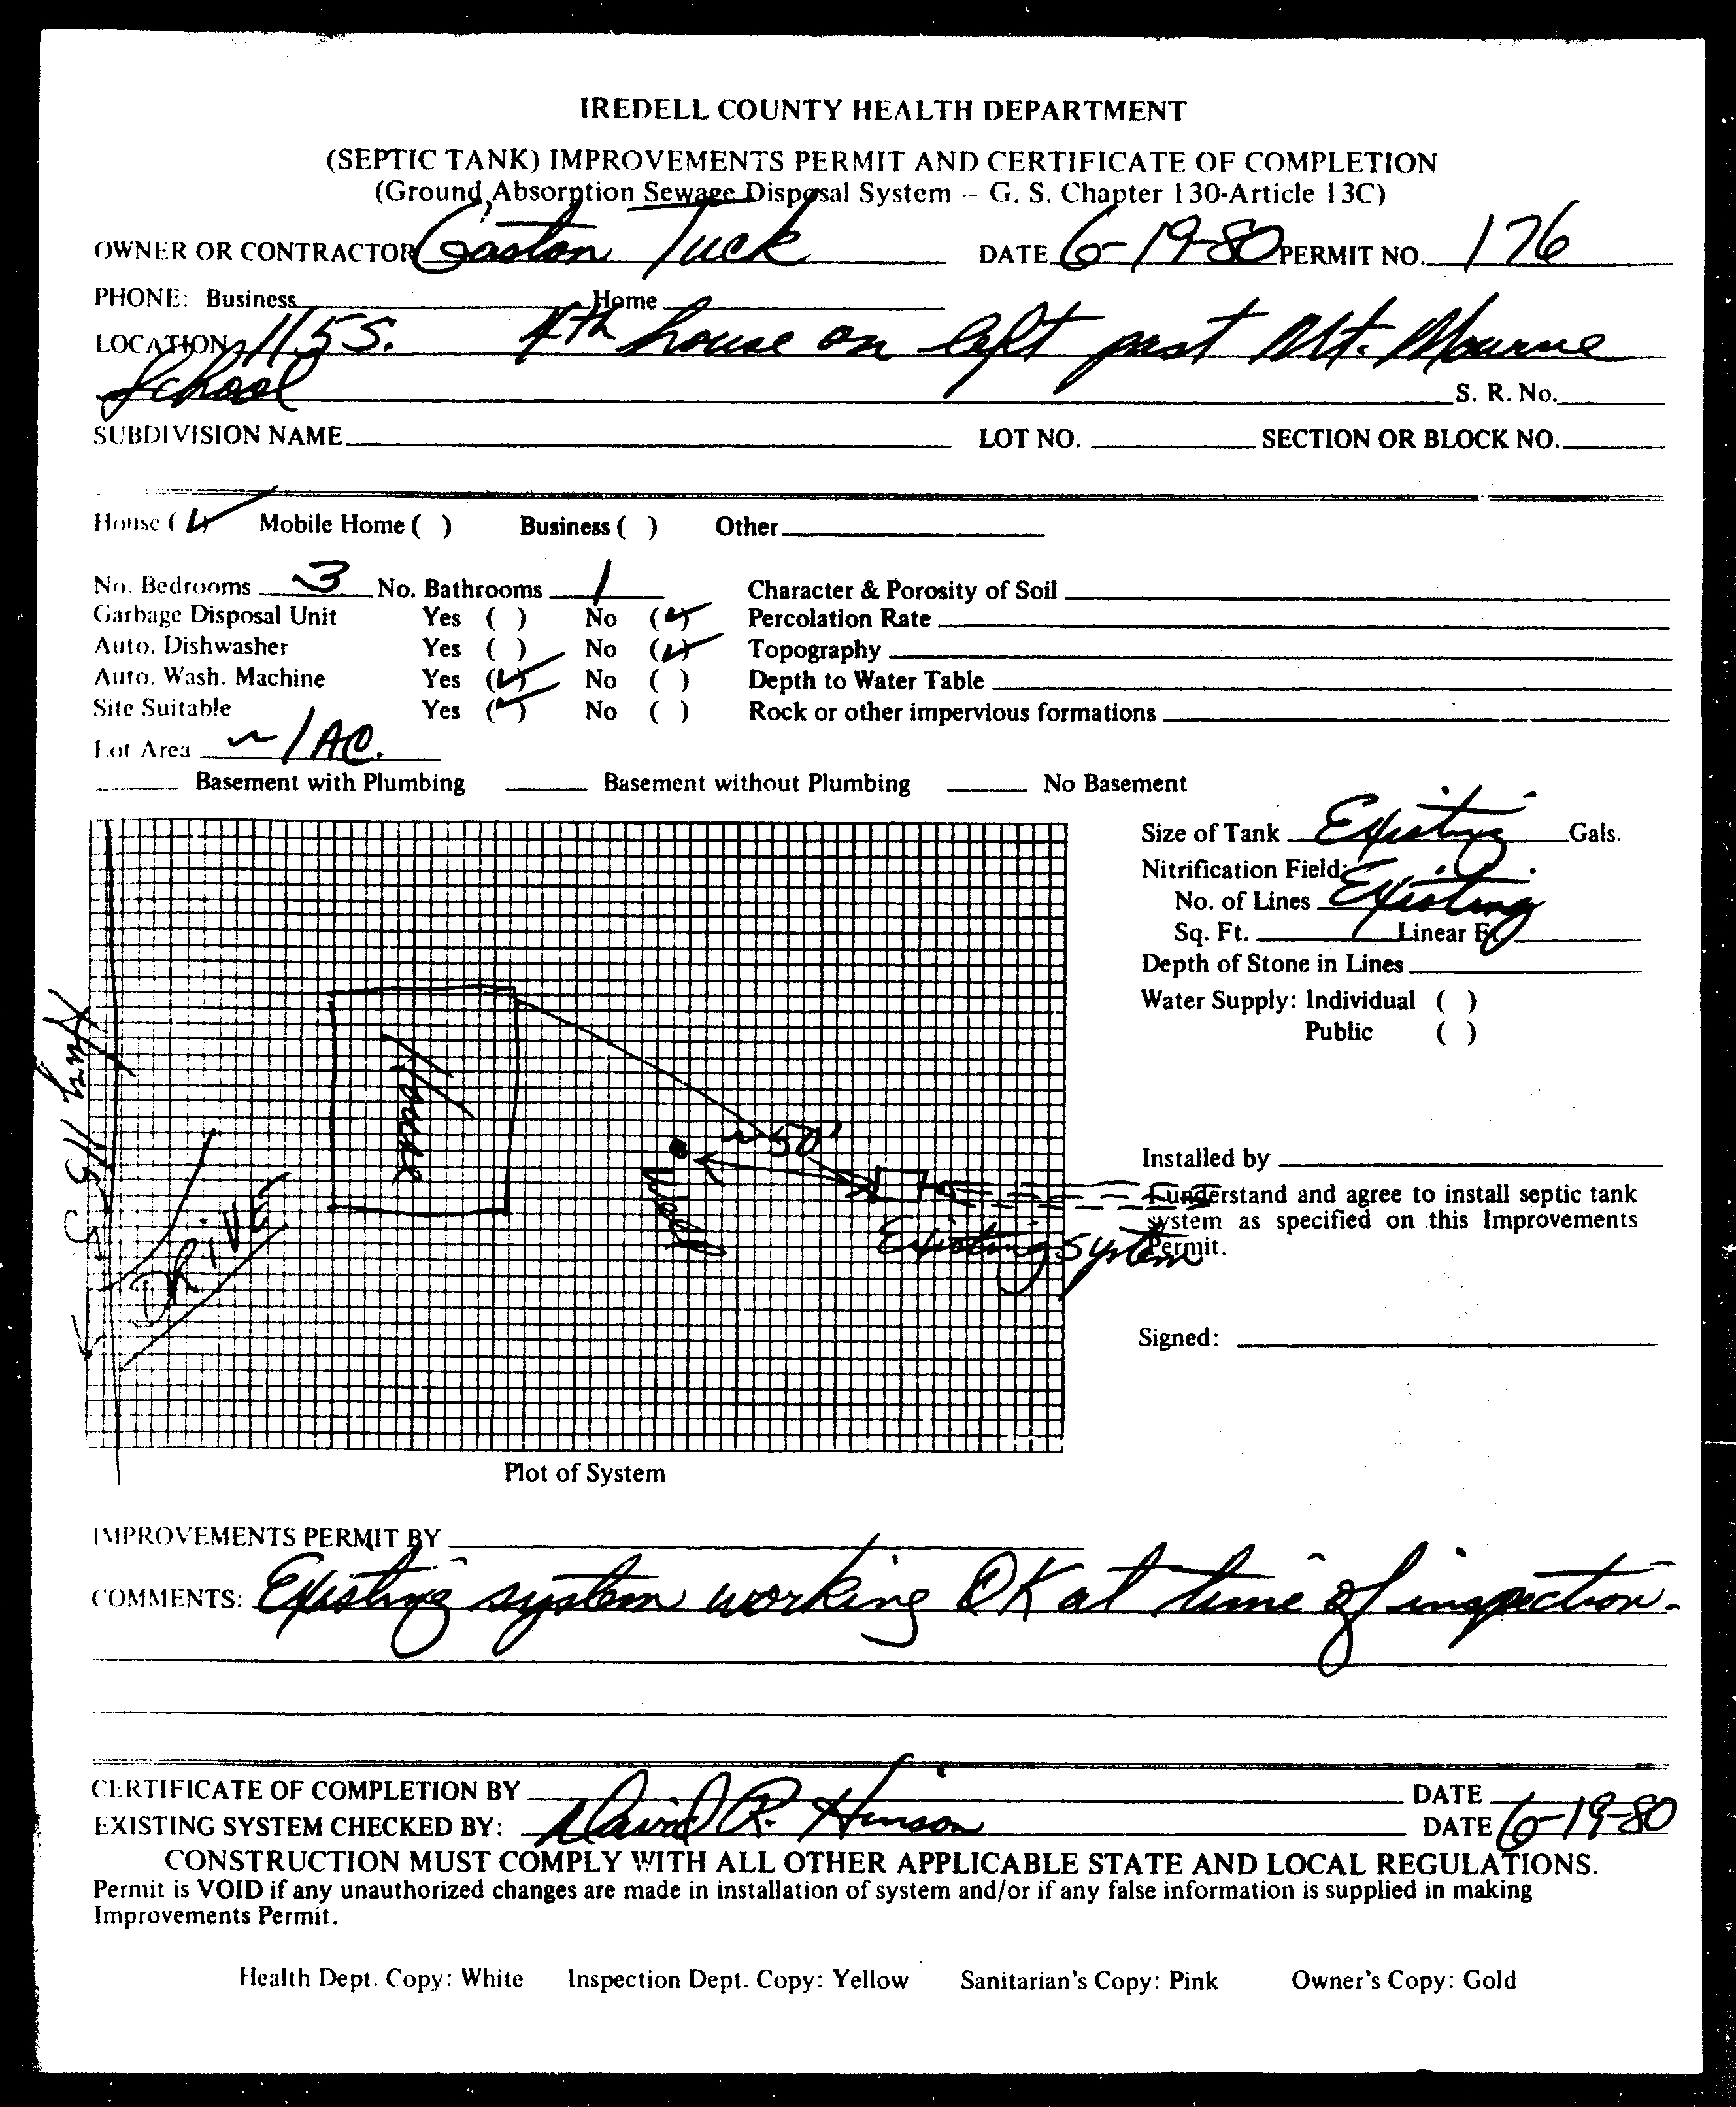 IREDELL COUNTY HEALTH DEPARTMENT
(SEPTIC TANK) IMPROVEMENTS PERMIT AND CERTIFICATE OF COMPLETION
(Ground Absorption Sewage Disposal System -- G. S. Chapter 130-Article 13C)
OWNER OR CONTRACTOR Gaston Tuck DATE 6-19-80 PERMIT NO. 176
PHONE: Business Home
LOCATION 115 S. 4th house on left past Mt. Mourne
School S. R. No.
SUBDIVISION NAME LOT NO. SECTION OR BLOCK NO.
House (✓) Mobile Home ( ) Business ( ) Other
No. Bedrooms 3 No. Bathrooms 1 Character & Porosity of Soil
Garbage Disposal Unit Yes ( ) No (✓) Percolation Rate
Auto. Dishwasher Yes ( ) No (✓) Topography
Auto. Wash. Machine Yes (✓) No ( ) Depth to Water Table
Site Suitable Yes (✓) No ( ) Rock or other impervious formations
Lot Area ~ 1 AC.
Basement with Plumbing Basement without Plumbing No Basement
Size of Tank Existing Gals.
Nitrification Field:
No. of Lines Existing
Sq. Ft. Linear Ft.
Depth of Stone in Lines
Water Supply: Individual ( )
Public ( )
Hwy 115 S
House
DRIVE
Well
~ 50'
Existing System
Installed by
I understand and agree to install septic tank
system as specified on this Improvements
Permit.
Signed:
Plot of System
IMPROVEMENTS PERMIT BY
COMMENTS: Existing system working OK at time of inspection.
CERTIFICATE OF COMPLETION BY DATE
EXISTING SYSTEM CHECKED BY: David R. Hinson DATE 6-19-80
CONSTRUCTION MUST COMPLY WITH ALL OTHER APPLICABLE STATE AND LOCAL REGULATIONS.
Permit is VOID if any unauthorized changes are made in installation of system and/or if any false information is supplied in making
Improvements Permit.
Health Dept. Copy: White Inspection Dept. Copy: Yellow Sanitarian's Copy: Pink Owner's Copy: Gold